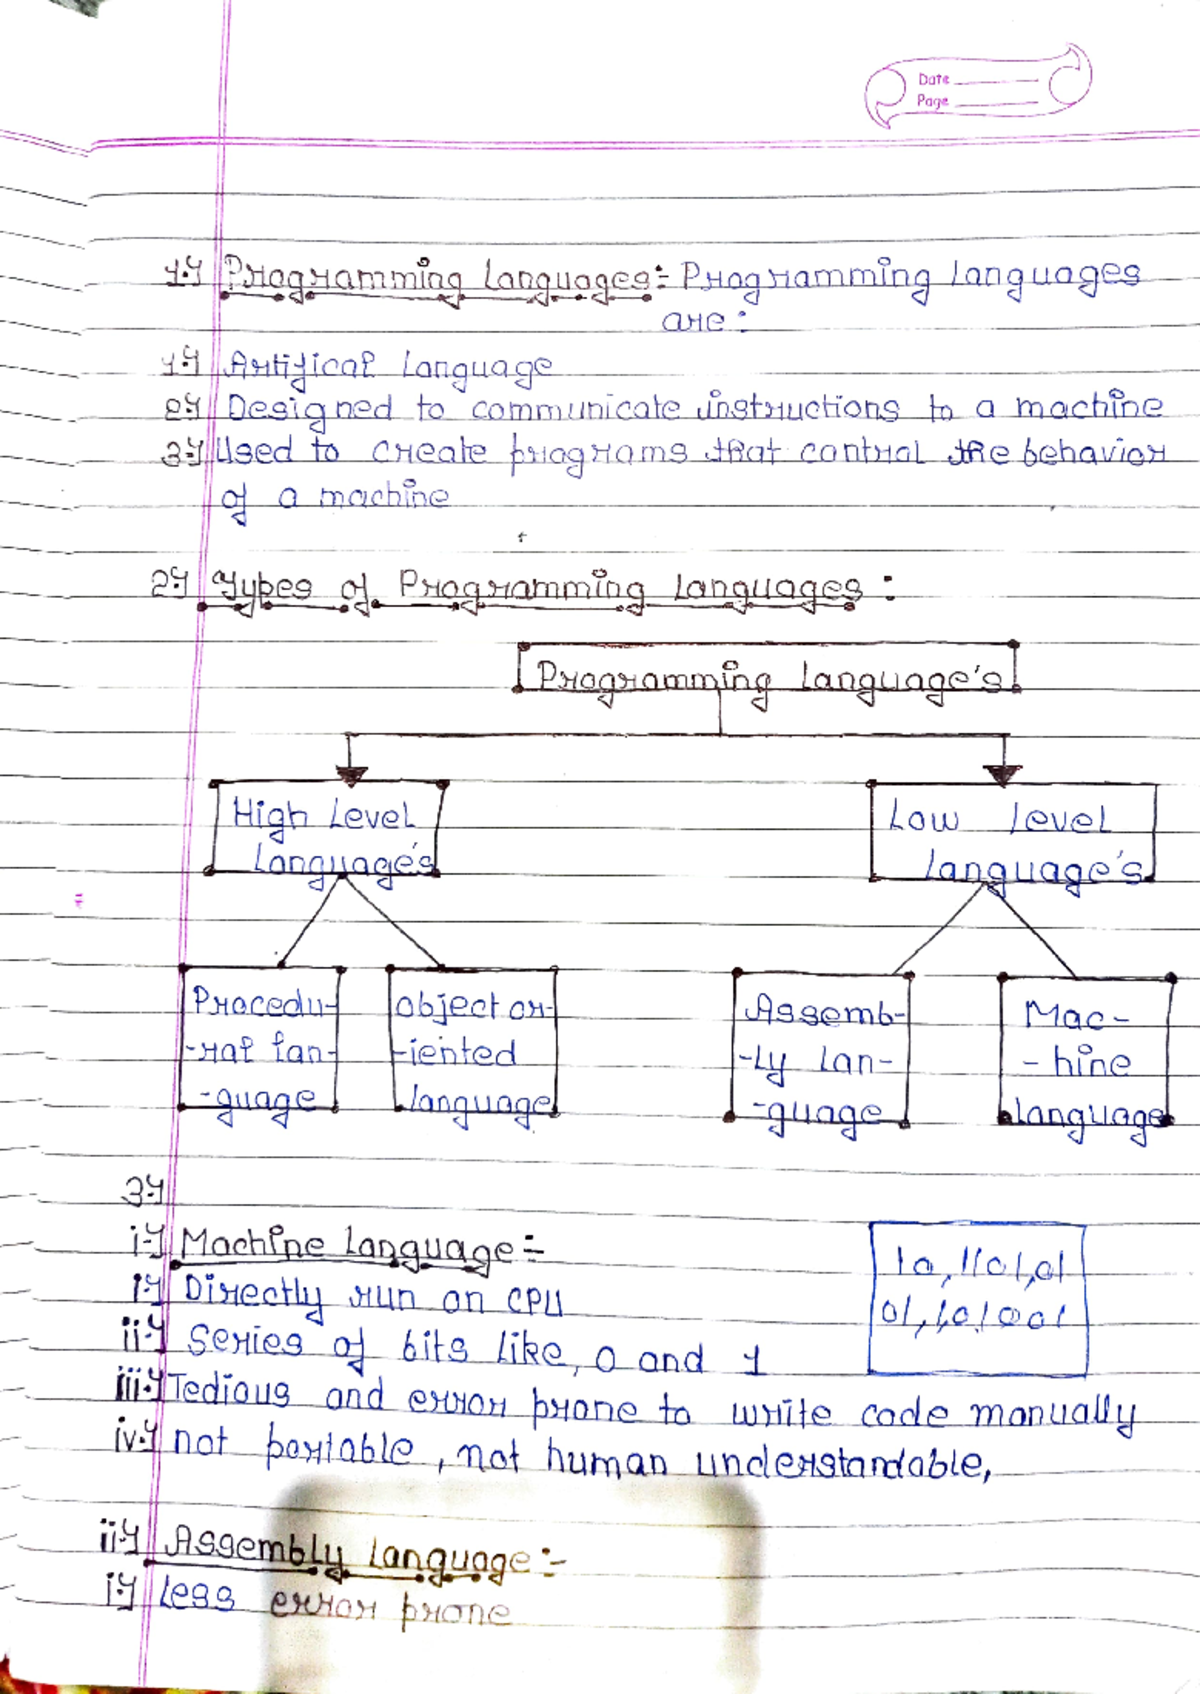 Date
Page
1.) Programming Languages:- Programming Languages
are :
1.) Artifical Language
2.) Designed to communicate instructions to a machine
3.) Used to create programs that control the behavior
of a machine
2.) Types of Programming Languages :
Programming Language's
High Level
Language's
Low Level
Language's
Procedu-
-ral lan-
-guage
object or-
-iented
language
Assemb-
-ly lan-
-guage
Mac-
-hine
language
3.)
i.) Machine Language :-
i.) Directly run on CPU
ii.) Series of bits like, 0 and 1
iii.) Tedious and error prone to write code manually
iv.) not portable, not human understandable,
10,1101,01
01,1,01001
ii.) Assembly Language :-
i.) Less error prone